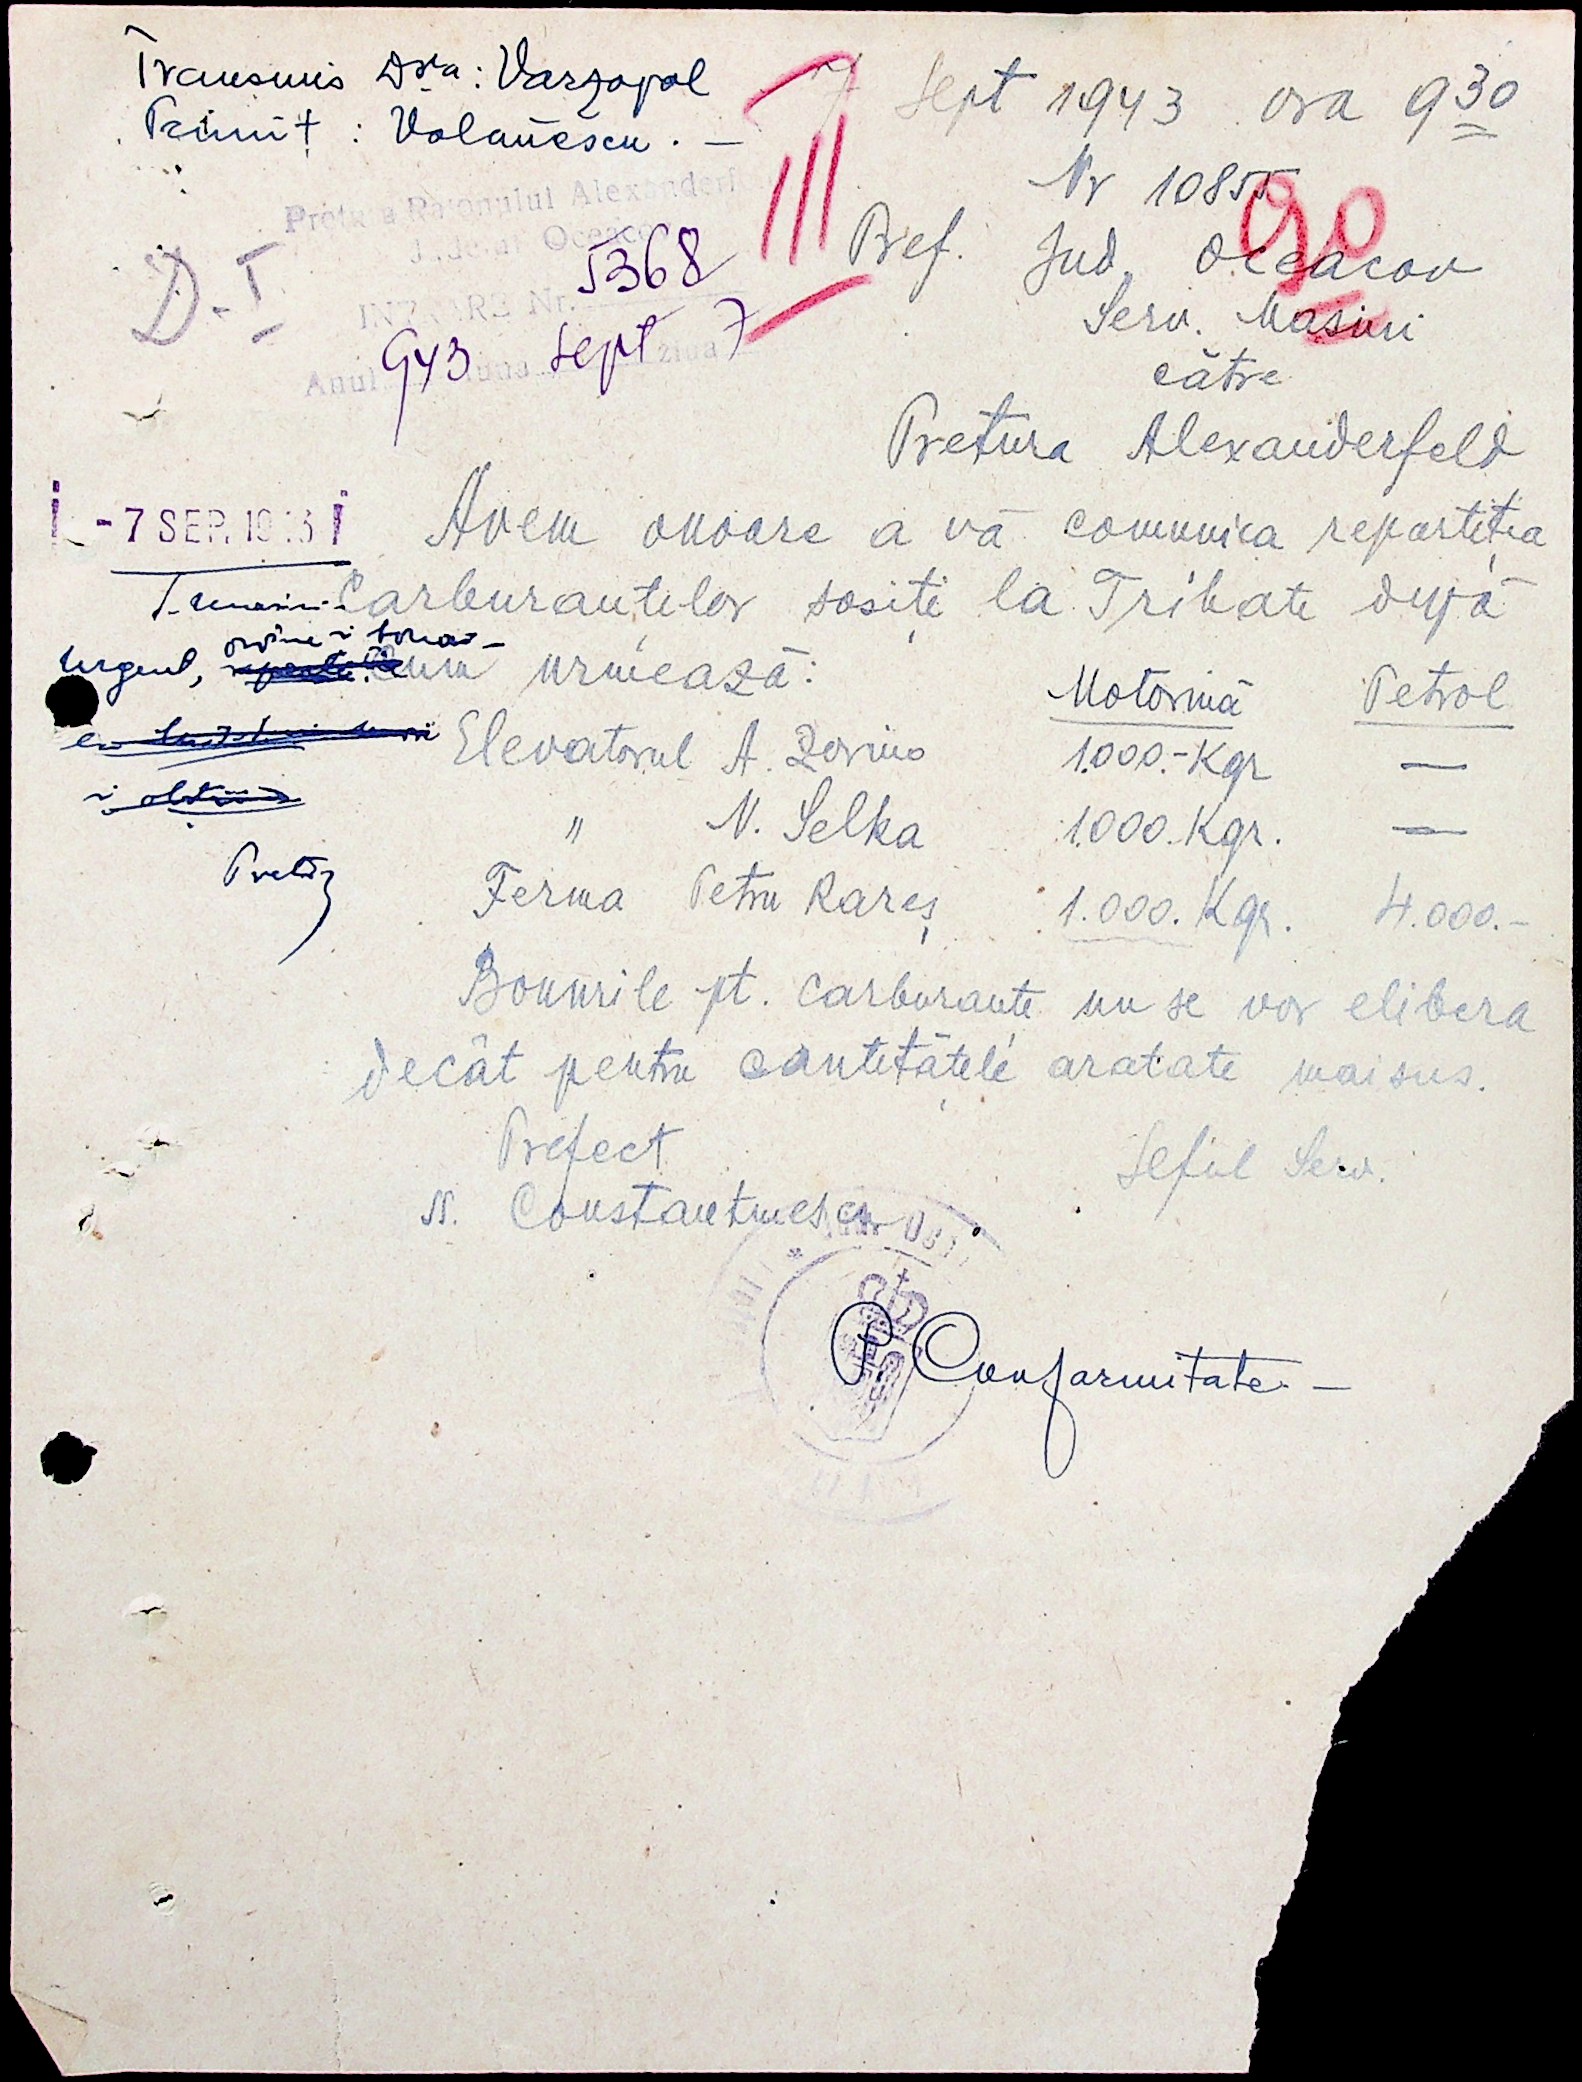 Transmis Dra: Varzopol
Primit : Volănescu. —
7 Sept 1943 ora 9 30
Nr 10855
III
90
Pretura Raionului Alexanderf
Județul Oceacov
INTRARE Nr. 5368
Anul 943 luna Sept ziua 7
D-I
Pref. Jud. Oceacov
Serv. Masini
către
Pretura Alexanderfeld
- 7 SEP. 1943
Avem onoare a vă comunica repartiția
Carburanților sosiți la Trihate după
cum urmează:
Urgent,
Motorină Petrol
Elevatorul A. Zorino 1.000.- Kgr —
" N. Selka 1.000. Kgr. —
Ferma Petru Rareș 1.000. Kgr. 4.000.-
Pretor
Bonurile pt. carburanți nu se vor elibera
decât pentru cantitățile aratate mai sus.
Prefect Șeful Serv.
ss. Constantinescu
P. Conformitate. —